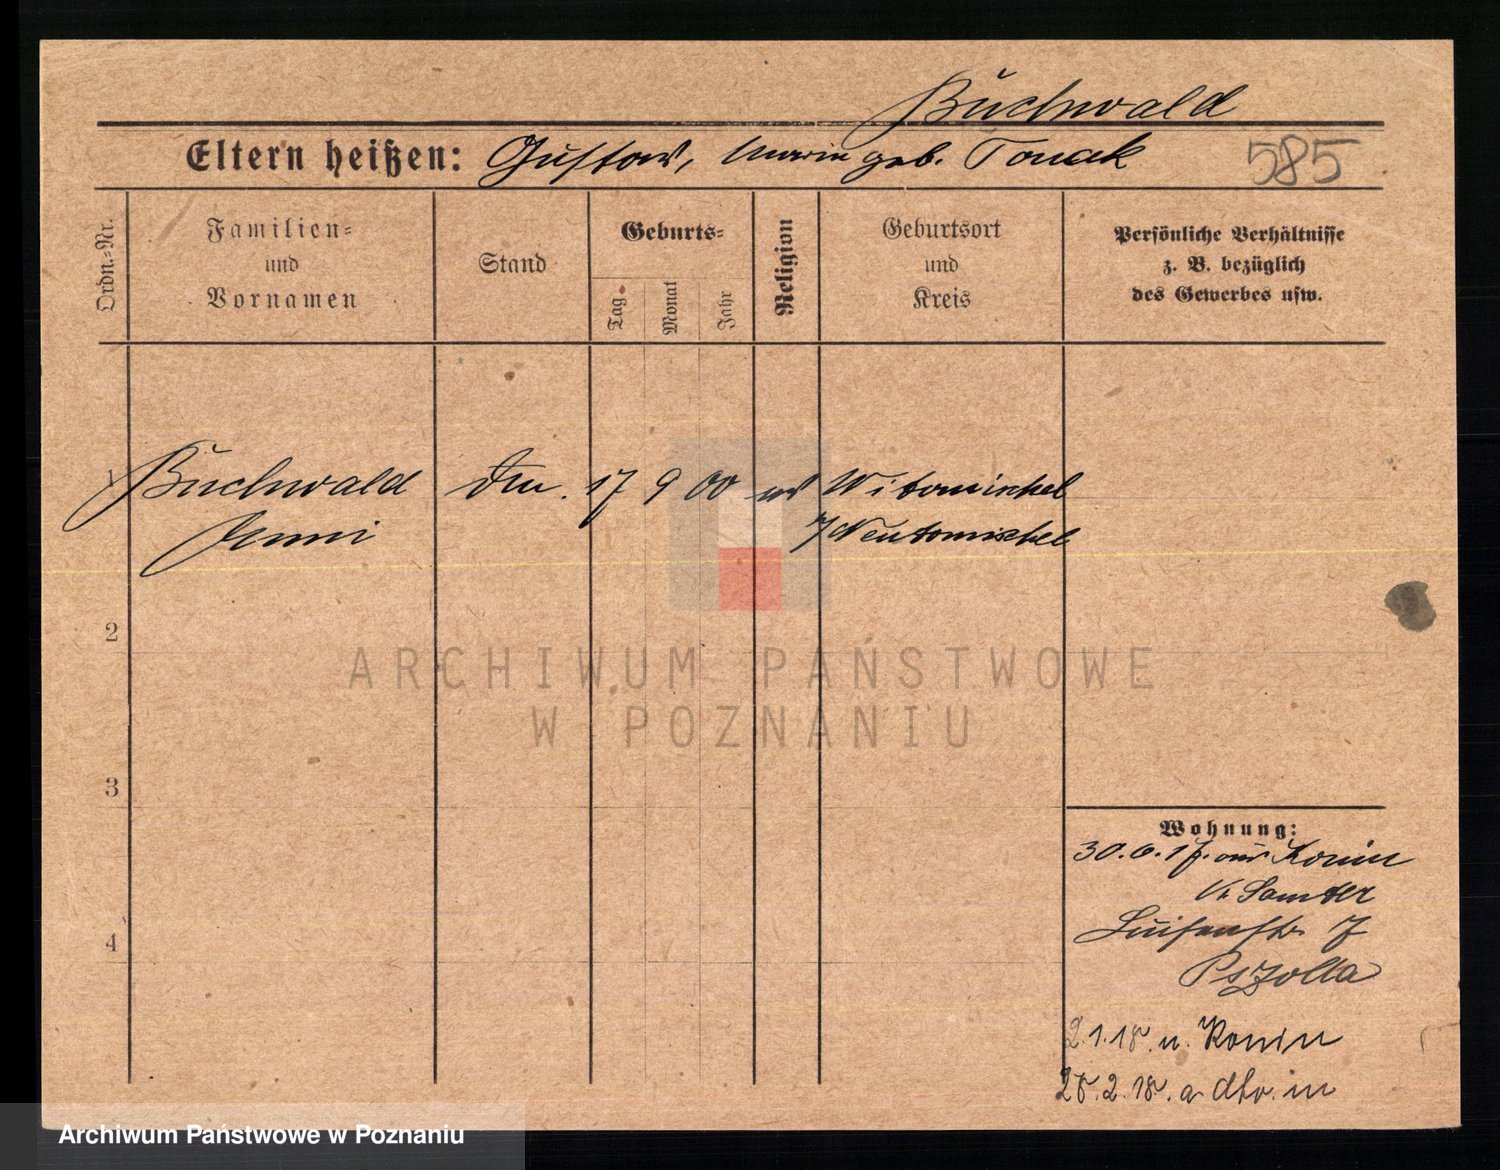 Buchwald
Eltern heißen: Gustav, Maria geb. Tonak
585
Ordn.-Nr.
Familien-
und
Vornamen
Stand
Geburts-
Tag
Monat
Jahr
Religion
Geburtsort
und
Kreis
Persönliche Verhältnisse
z. B. bezüglich
des Gewerbes usw.
1 Buchwald 17 9 00 ev Witomischel
Jenni Neutomischel
2
3
4
Wohnung:
30.6.17. aus Konin
Kr Samter
Luisenstr 7
Pszolla
2.1.18. n. Konin
28.2.18. a dto. in
ARCHIWUM PAŃSTWOWE
W POZNANIU
Archiwum Państwowe w Poznaniu